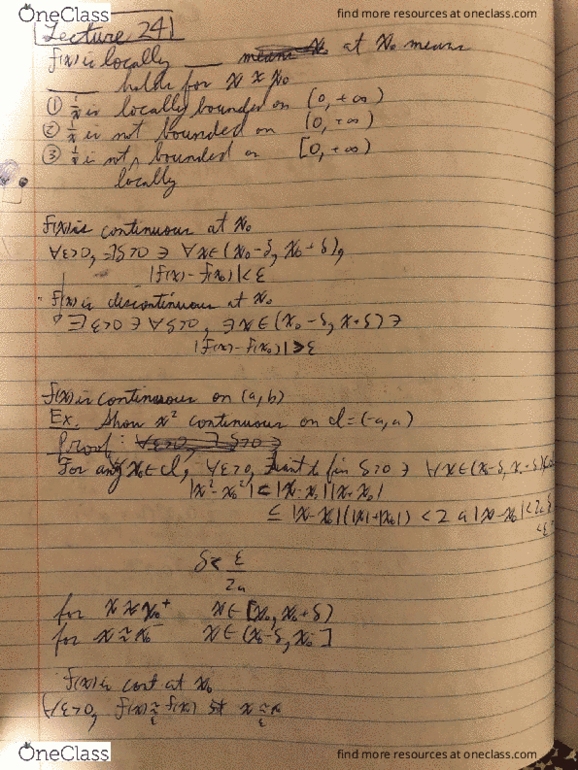 OneClass
find more resources at oneclass.com
Lecture 24
f(x) is locally ___ at x₀ means
___ holds for x ≈ x₀
① 1/x is locally bounded on (0, +∞)
② 1/x is not bounded on (0, +∞)
③ 1/x is not bounded on [0, +∞)
locally
f(x) is continuous at x₀
∀ε>0, ∃δ>0 ∋ ∀x∈(x₀-δ, x₀+δ),
|f(x)-f(x₀)|<ε
f(x) is discontinuous at x₀
∃ε>0 ∋ ∀δ>0, ∃x∈(x₀-δ, x+δ) ∋
|f(x)-f(x₀)|>ε
f(x) is continuous on (a,b)
Ex. Show x² continuous on d=(-a,a)
Proof: ∀ε>0 ∃ δ>0 ∋
For any x₀∈d, ∀ε>0, want to fin δ>0 ∋ ∀x∈(x₀-δ, x₀+δ)
|x²-x₀²|≤|x-x₀||x+x₀|
≤ |x-x₀|(|x|+|x₀|) < 2a|x-x₀|<2aδ
<ε
δ< ε/2a
for x≈x₀⁺ x∈[x₀, x₀+δ)
for x≈x₀⁻ x∈(x₀-δ, x₀]
f(x) is cont at x₀
∀ε>0, f(x) ≈ f(x) st x ≈
OneClass
find more resources at oneclass.com